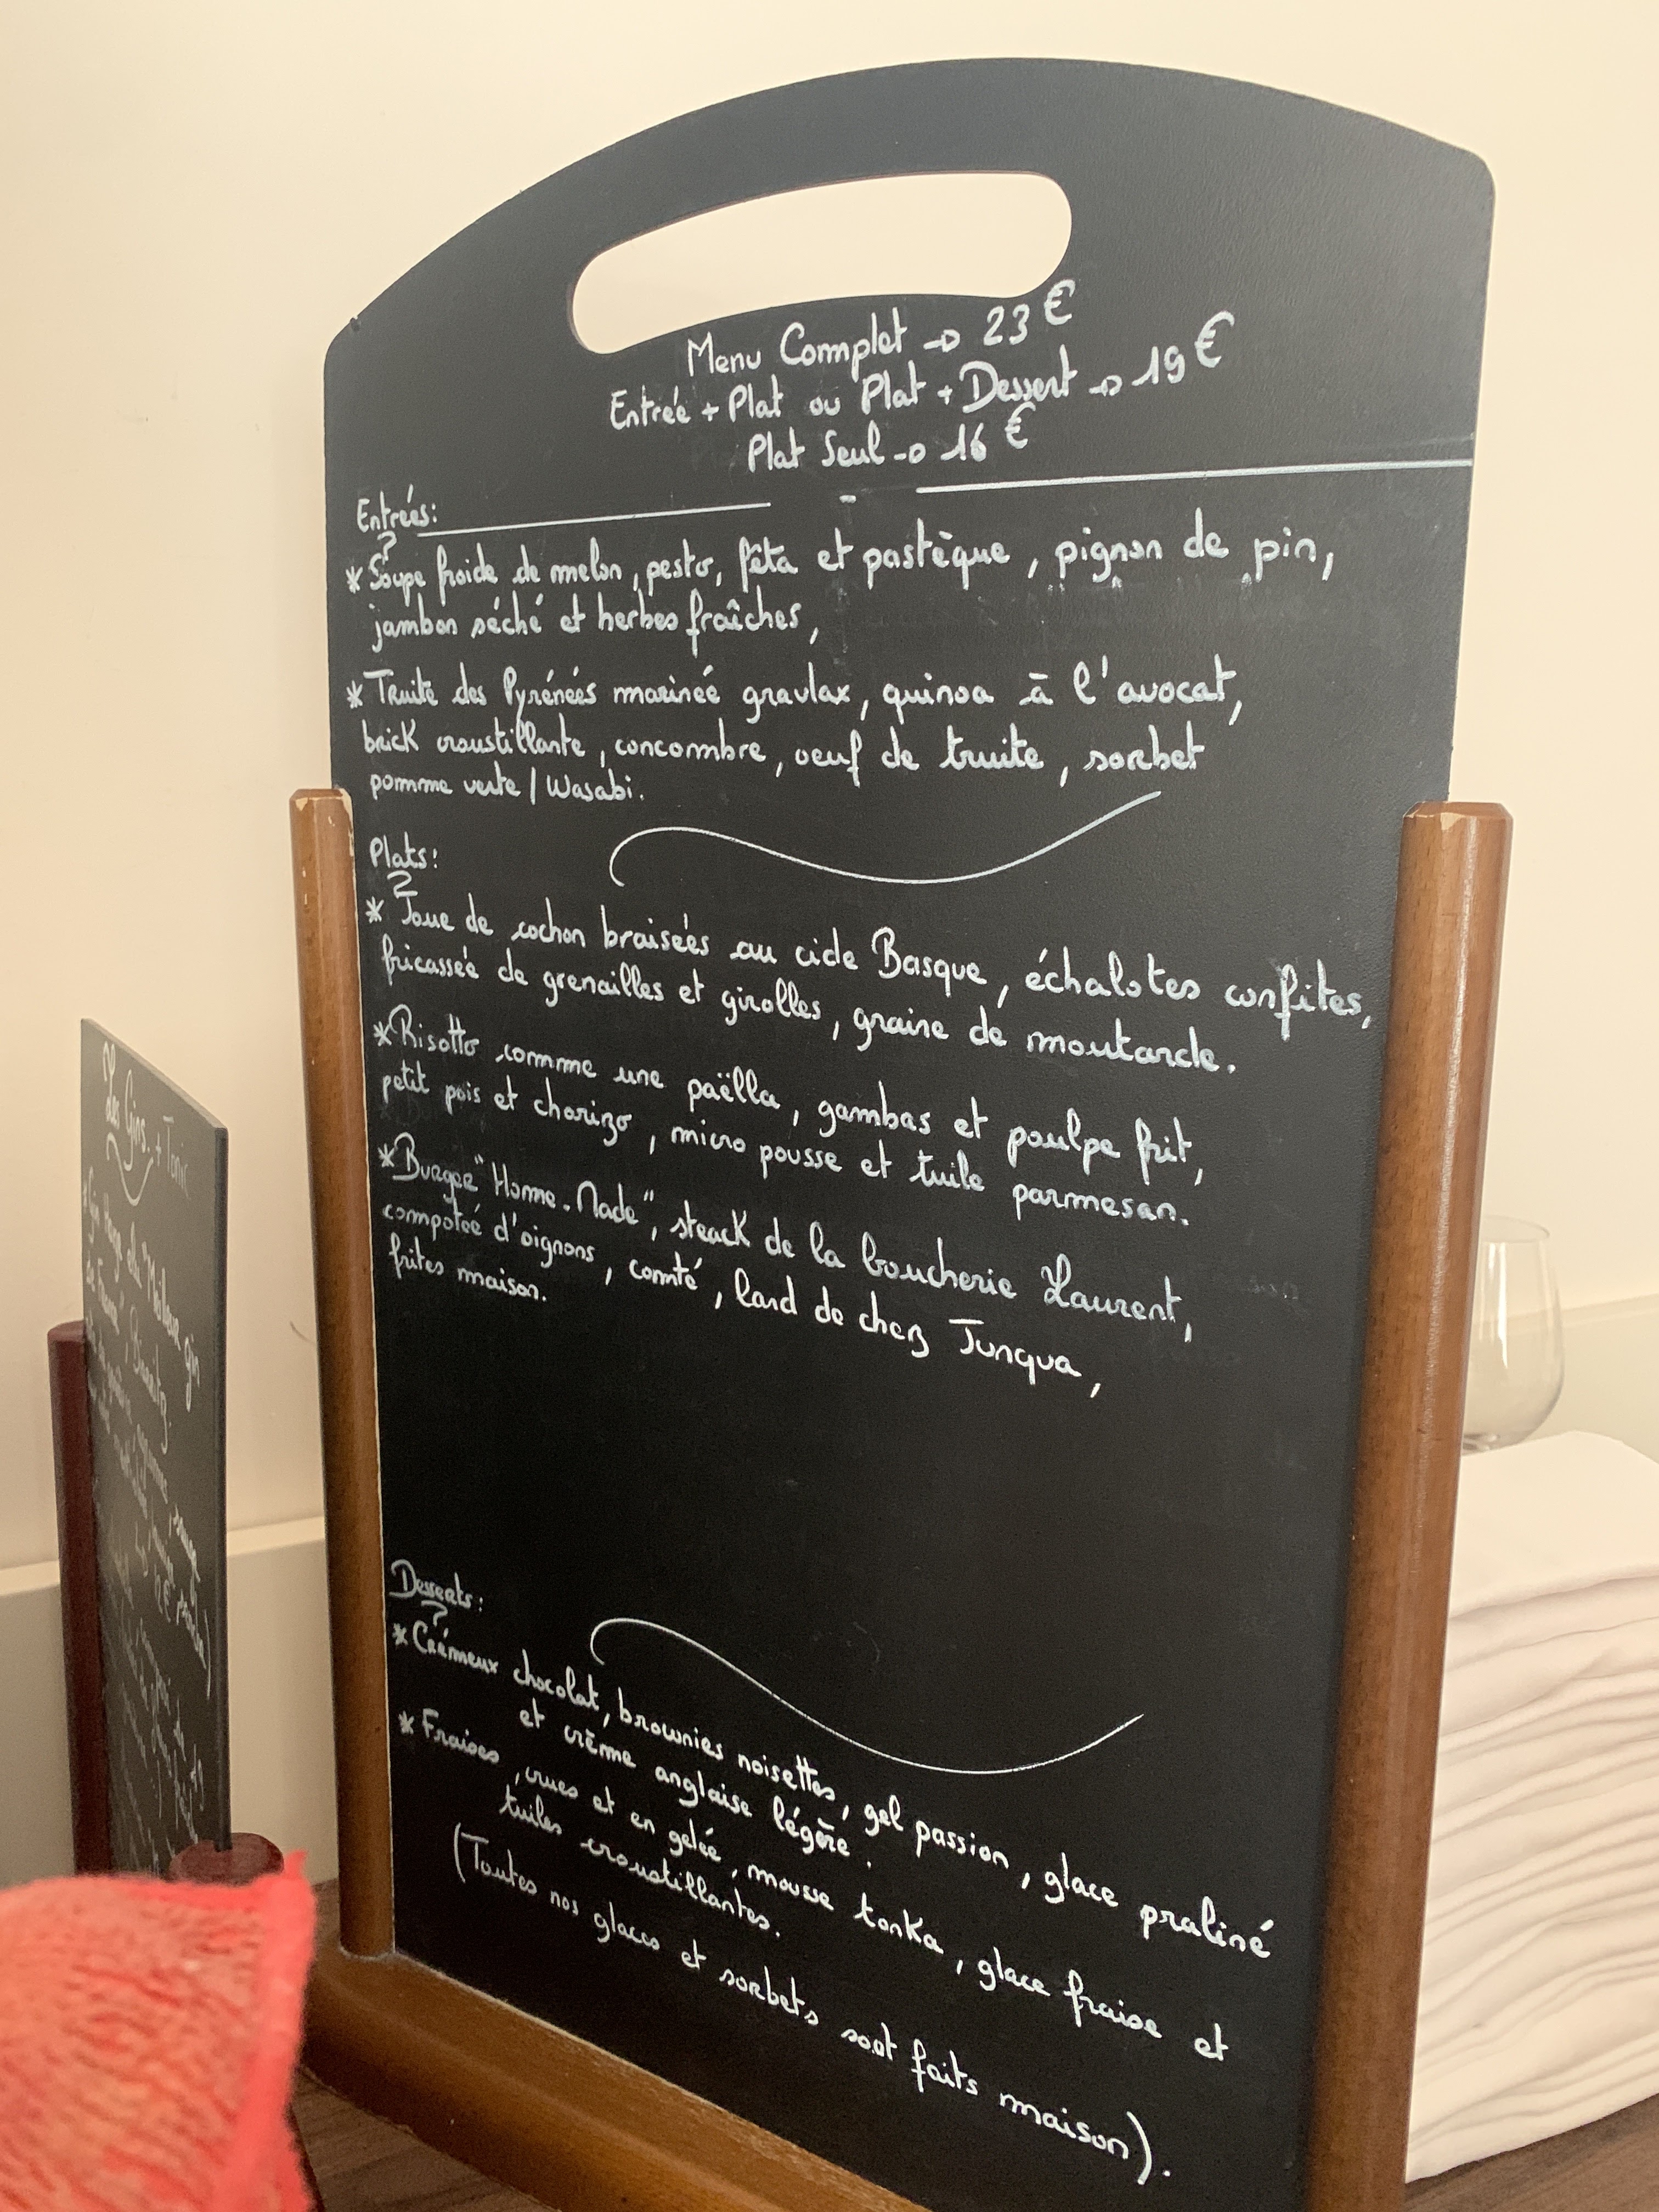 Menu Complet → 23€
Entrée + Plat ou Plat + Dessert → 19€
Plat Seul → 16€
Entrées:
* Soupe froide de melon, pesto, fêta et pastèque, pignon de pin,
jambon séché et herbes fraîches,
* Truite des Pyrénées marinée gravlax, quinoa à l'avocat,
brick croustillante, concombre, oeuf de truite, sorbet
pomme verte / Wasabi.
Plats:
* Joue de cochon braisées au cidre Basque, échalotes confites,
fricassée de grenailles et girolles, graine de moutarde.
* Risotto comme une paëlla, gambas et poulpe frit,
petit pois et chorizo, micro pousse et tuile parmesan.
* Burger "Home-Made", steack de la boucherie Laurent,
compotée d'oignons, comté, lard de chez Junqua,
frites maison.
Desserts:
* Crémeux chocolat, brownies noisettes, gel passion, glace praliné
et crème anglaise légère.
* Fraises, crues et en gelée, mousse tonka, glace fraise et
tuiles croustillantes.
(Toutes nos glaces et sorbets sont faits maison).
Les Gins + Tonic
"Meilleur gin
de France" Biarritz